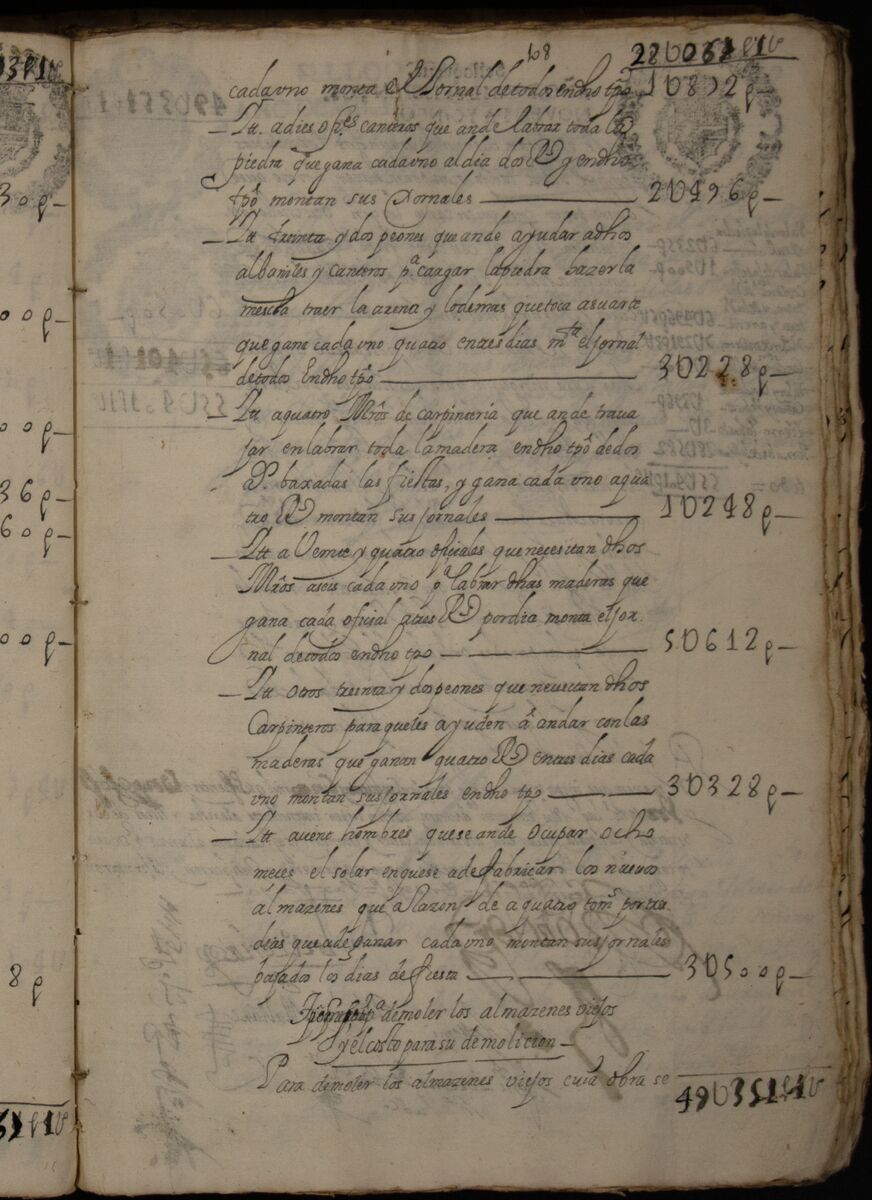 108
cada uno monta el Jornal de todos en dho tpo̅ 1U872 p
Itt. a dies ofes canteros que an de labrar toda la
piedra que gana cada vno al dia dos Rs y en dho
tpo̅ montan sus xornales 2U496 p
Itt treinta y dos peones que ande ayudar adhos
albaniles y canteros pa cargar la piedra hazer la
mescla traer la arena y lo demas que toca a su arte
que gana cada vno quatro en tres dias mta el jornal
de todos En dho tpo̅ 3U328 p
Itt a quatro Mros de carpinteria que an de trava
jar en labrar toda la madera en dho tpo̅ de dos
As. baxadas las fiestas, y gana cada vno a qua
tro Rs montan sus jornales 1U248 p
Itt a Veinte y quatro oficiales que necesitan dhos
Mros a seis cada vno pa labrar dhas maderas que
gana cada oficial a tres Rs por dia monta el jor.
nal de todos en dho tpo 5U612 p
Itt otros treinta y dos peones que necesitan dhos
Carpinteros para que les ayuden a andar con las
maderas que ganan quatro Rs en tres dias cada
vno montan sus jornales en dho tpo 3U328 p
Itt a cient hombres que se an de ocupar ocho
meces el solar en que se a de fabricar los nuevos
almazenes que a Razon de a quatro toms por tres
dias que a de ganar cada vno montan sus jornales
bajados los dias de fiesta 3U500 p
pa demoler los almazenes viejos
y el costo para su demolicion
Para demoler los almazenes viejos cuia obra se